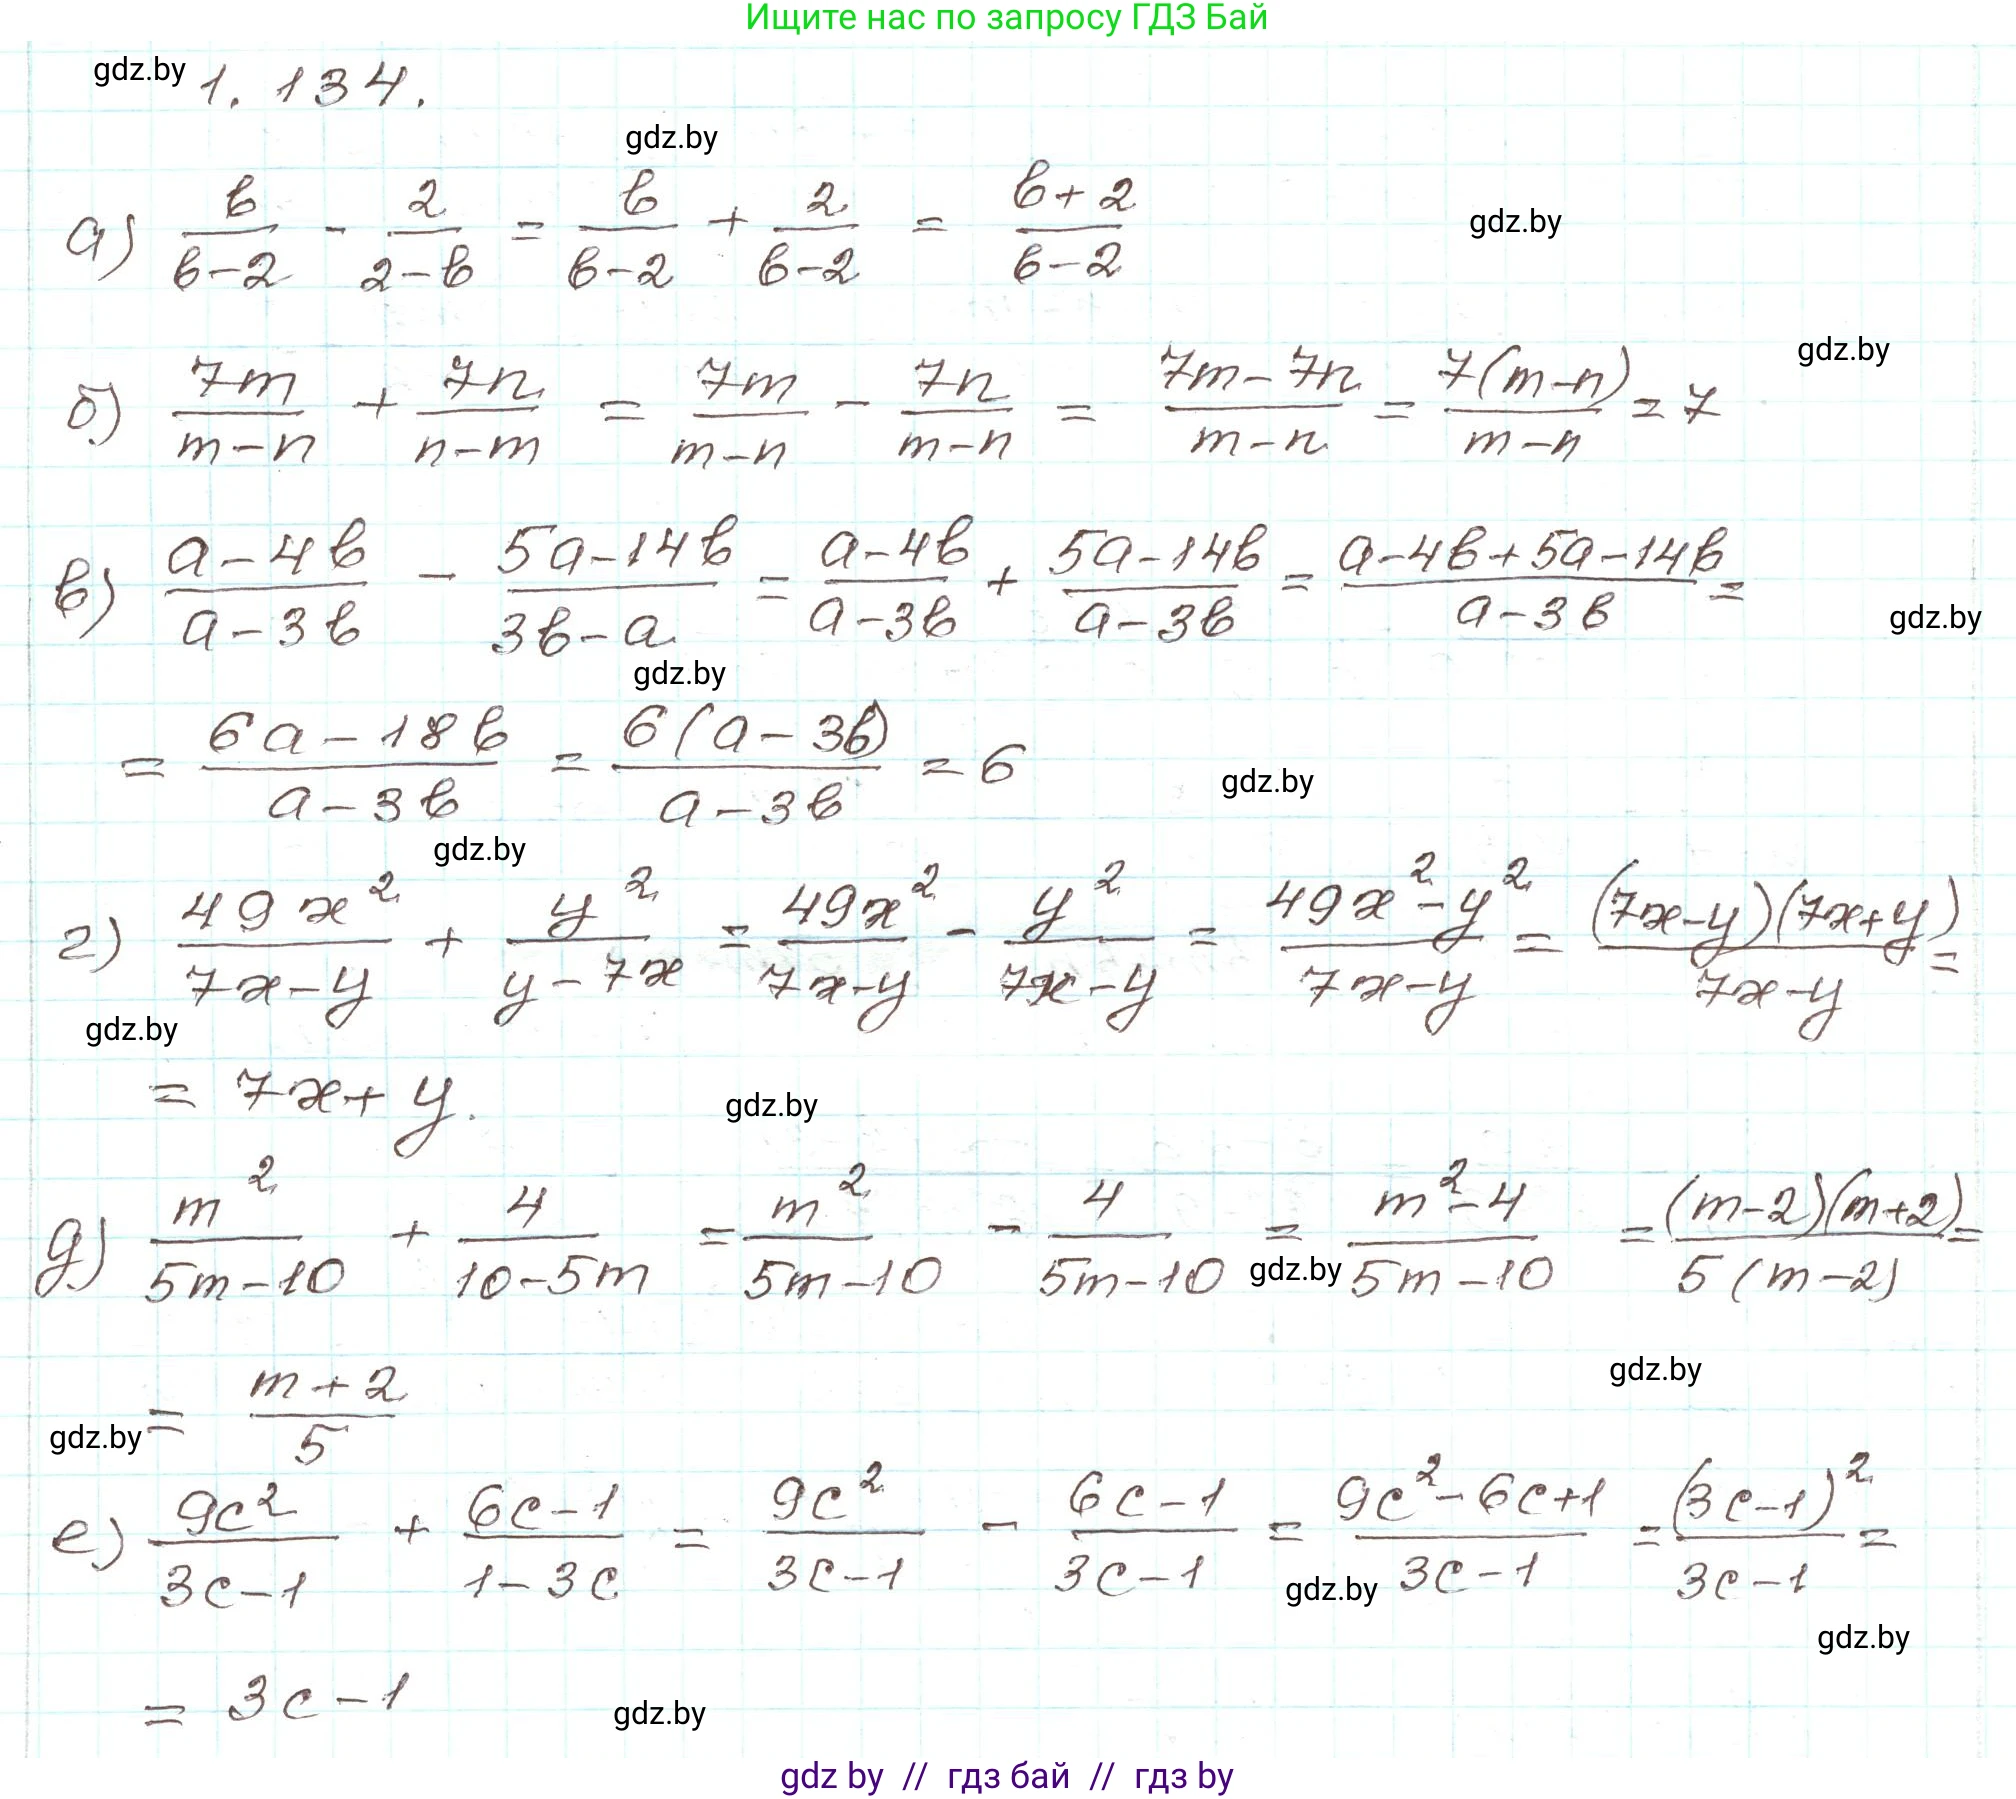 Ищите нас по запросу ГДЗ Бай
gdz.by 1. 134.
gdz.by
а) b/(b-2) - 2/(2-b) = b/(b-2) + 2/(b-2) = (b+2)/(b-2) gdz.by
gdz.by
б) 7m/(m-n) + 7n/(n-m) = 7m/(m-n) - 7n/(m-n) = (7m-7n)/(m-n) = 7(m-n)/(m-n) = 7
в) (a-4b)/(a-3b) - (5a-14b)/(3b-a) = (a-4b)/(a-3b) + (5a-14b)/(a-3b) = (a-4b+5a-14b)/(a-3b) =
gdz.by
gdz.by
= (6a-18b)/(a-3b) = 6(a-3b)/(a-3b) = 6 gdz.by
gdz.by
г) 49x²/(7x-y) + y²/(y-7x) = 49x²/(7x-y) - y²/(7x-y) = (49x²-y²)/(7x-y) = (7x-y)(7x+y)/(7x-y) =
gdz.by
= 7x+y. gdz.by
д) m²/(5m-10) + 4/(10-5m) = m²/(5m-10) - 4/(5m-10) = (m²-4)/(5m-10) = (m-2)(m+2)/5(m-2) =
gdz.by
gdz.by
gdz.by = (m+2)/5
е) 9c²/(3c-1) + (6c-1)/(1-3c) = 9c²/(3c-1) - (6c-1)/(3c-1) = (9c²-6c+1)/(3c-1) = (3c-1)²/(3c-1) =
gdz.by
gdz.by
= 3c-1 gdz.by
gdz by // гдз бай // гдз by